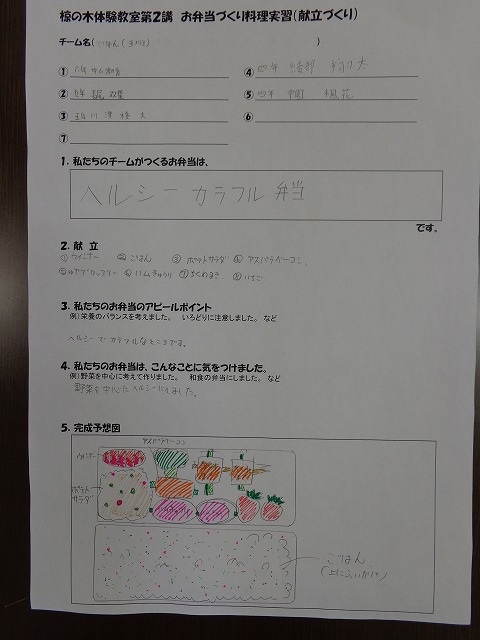 椋の木体験教室第2講 お弁当づくり料理実習(献立づくり)
チーム名(ごはん ( )
①
④ 四年
② 双葉
⑤ 四年 楓花
③
⑥
⑦
1. 私たちのチームがつくるお弁当は、
ヘルシーカラフル弁当
です。
2. 献 立
①ウインナー ②ごはん ③ポテトサラダ ④アスパラベーコン
⑤ゆでブロッコリー ⑥ハムきゅうり ⑦ちくわまき ⑧いちご
3. 私たちのお弁当のアピールポイント
例)栄養のバランスを考えました。 いろどりに注意しました。 など
ヘルシーでカラフルなところです。
4. 私たちのお弁当は、こんなことに気をつけました。
例)野菜を中心に考えて作りました。 和食の弁当にしました。 など
野菜を中心にヘルシーにしました。
5. 完成予想図
アスパラベーコン
ウインナー
ポテト
サラダ
ごはん
(上にふりかけ)